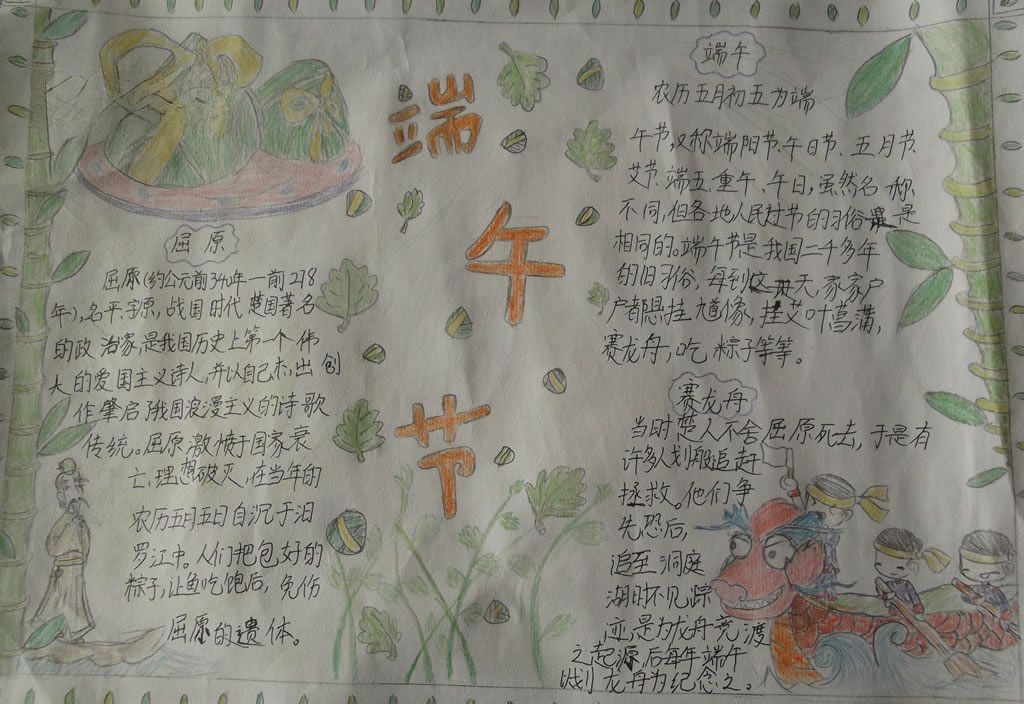 端午节
屈原
屈原(约公元前340年一前278
年),名平,字原,战国时代楚国著名
的政治家,是我国历史上第一个伟
大的爱国主义诗人,并以自己杰出创
作肇启了我国浪漫主义的诗歌
传统。屈原激愤于国家衰
亡,理想破灭,在当年的
农历五月五日自沉于汨
罗江中。人们把包好的
粽子,让鱼吃饱后,免伤
屈原的遗体。
端午
农历五月初五为端
午节,又称端阳节、午日节、五月节、
艾节、端五、重午、午日,虽然名称
不同,但各地人民过节的习俗是
相同的。端午节是我国二千多年
的旧习俗,每到这天,家家户
户都悬挂馗像,挂艾叶菖蒲,
赛龙舟,吃粽子等等。
赛龙舟
当时楚人不舍屈原死去,于是有
许多人划船追赶
拯救。他们争
先恐后,
追至洞庭
湖时不见踪
迹,是为龙舟竞渡
之起源,后每年端午
划龙舟为纪念之。